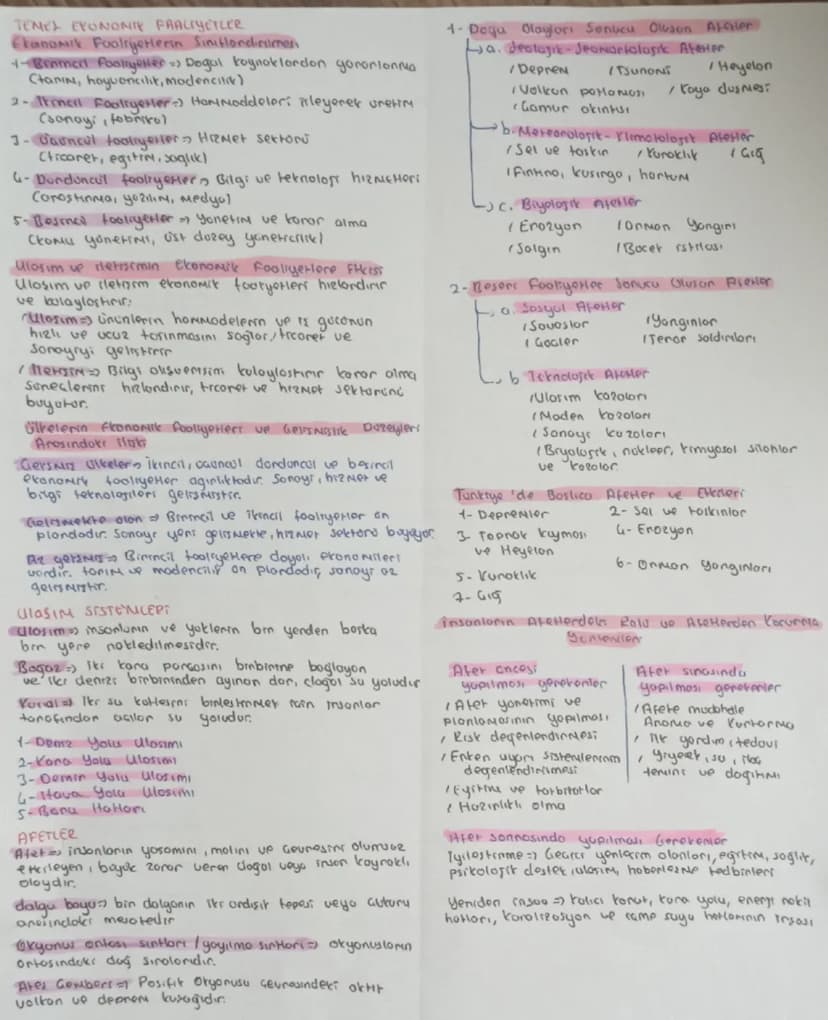 TEMEL EKONOMİK FAALİYETLER
Ekonomik Faaliyetlerin Sınıflandırılması
1- Birincil Faaliyetler => Doğal kaynaklardan yararlanma
(tarım, hayvancılık, madencilik)
2- İkincil Faaliyetler => Hammaddeleri işleyerek üretim
(sanayi, fabrika)
3- Üçüncül faaliyetler => Hizmet sektörü
(ticaret, eğitim, sağlık)
4- Dördüncül faaliyetler => Bilgi ve teknoloji hizmetleri
(araştırma, yazılım, medya)
5- Beşincil faaliyetler => Yönetim ve karar alma
(kamu yönetimi, üst düzey yöneticilik)
Ulaşım ve iletişimin Ekonomik Faaliyetlere Etkisi
Ulaşım ve iletişim ekonomik faaliyetleri hızlandırır
ve kolaylaştırır.
/Ulaşım => Ürünlerin hammadelerin ve iş gücünün
hızlı ve ucuz taşınmasını sağlar/ticaret ve
sanayiyi geliştirir
/İletişim => Bilgi alışverişini kolaylaştırır karar alma
süreçlerini hızlandırır, ticaret ve hizmet sektörünü
büyütür.
Ülkelerin Ekonomik Faaliyetleri ve Gelişmişlik Düzeyleri
Arasındaki İlişki
Gelişmiş Ülkeler => İkincil, üçüncül dördüncül ve beşincil
ekonomik faaliyetler ağırlıktadır. Sanayi, hizmet ve
bilgi teknolojileri gelişmiştir.
Gelişmekte olan => Birincil ve ikincil faaliyetler ön
plandadır. Sanayi yeni gelişmekte, hizmet sektörü büyüyor.
Az gelişmiş => Birincil faaliyetlere dayalı ekonomileri
vardır. tarım ve madencilik ön plandadır, sanayi az
gelişmiştir.
ULAŞIM SİSTEMLERİ
Ulaşım => insanların ve yüklerin bir yerden başka
bir yere nakledilmesidir.
Boğaz => İki kara parçasını birbirine bağlayan
ve iki denizi birbirinden ayıran dar, doğal su yoludur
Kanal => İki su kütlesini birleştirmek için insanlar
tarafından açılan su yoludur.
1- Deniz Yolu Ulaşımı
2- Kara Yolu Ulaşımı
3- Demir Yolu Ulaşımı
4- Hava Yolu Ulaşımı
5- Boru Hatları
AFETLER
Afet => insanların yaşamını, malını ve çevresini olumsuz
etkileyen, büyük zarar veren doğal veya insan kaynaklı
olaydır.
dalga boyu => bir dalganın iki ardışık tepesi veya çukuru
arasındaki mesafedir
Okyanus ortası sırtları / yayılma sırtları => okyanusların
ortasındaki dağ sıralarıdır.
Ateş Çemberi => Pasifik Okyanusu çevresindeki aktif
volkan ve deprem kuşağıdır.
1- Doğa Olayları Sonucu Oluşan Afetler
a. Jeolojik-Jeomorfolojik Afetler
/Deprem /Tsunami /Heyelan
/Volkan patlaması /Kaya düşmesi
/Çamur akıntısı
b. Meteorolojik-Klimatolojik Afetler
/Sel ve taşkın /Kuraklık /Çığ
/Fırtına, kasırga, hortum
c. Biyolojik Afetler
/Erozyon /Orman Yangını
/Salgın /Böcek istilası
2- Beşeri Faaliyetler Sonucu Oluşan Afetler
a. Sosyal Afetler
/Savaşlar /Yangınlar
/Göçler /Terör saldırıları
b Teknolojik Afetler
/Ulaşım kazaları
/Maden kazaları
/Sanayi kazaları
/Biyolojik, nükleer, kimyasal silahlar
ve kazalar
Türkiye'de Başlıca Afetler ve Etkileri
1- Depremler 2- Sel ve taşkınlar
3- Toprak kayması 4- Erozyon
ve Heyelan
5- Kuraklık 6- Orman Yangınları
7- Çığ
İnsanların Afetlerdeki Rolü ve Afetlerden Korunma
Yöntemleri
Afet öncesi
yapılması gerekenler
/Afet yönetimi ve
planlamasının yapılması
/Risk değerlendirmesi
/Erken uyarı sistemlerinin
değerlendirilmesi
/Eğitim ve tatbikatlar
/Hazırlıklı olma
Afet sırasında
yapılması gerekenler
/Afete müdahale
Arama ve Kurtarma
/İlk yardım, tedavi
/Yiyecek, su, ilaç
temini ve dağıtımı
Afet sonrasında yapılması Gerekenler
İyileştirme => Geçici yerleşim alanları, eğitim, sağlık,
psikolojik destek, ulaşım, haberleşme tedbirleri
Yeniden inşaa => kalıcı konut, kara yolu, enerji nakil
hatları, kanalizasyon ve içme suyu hatlarının inşası